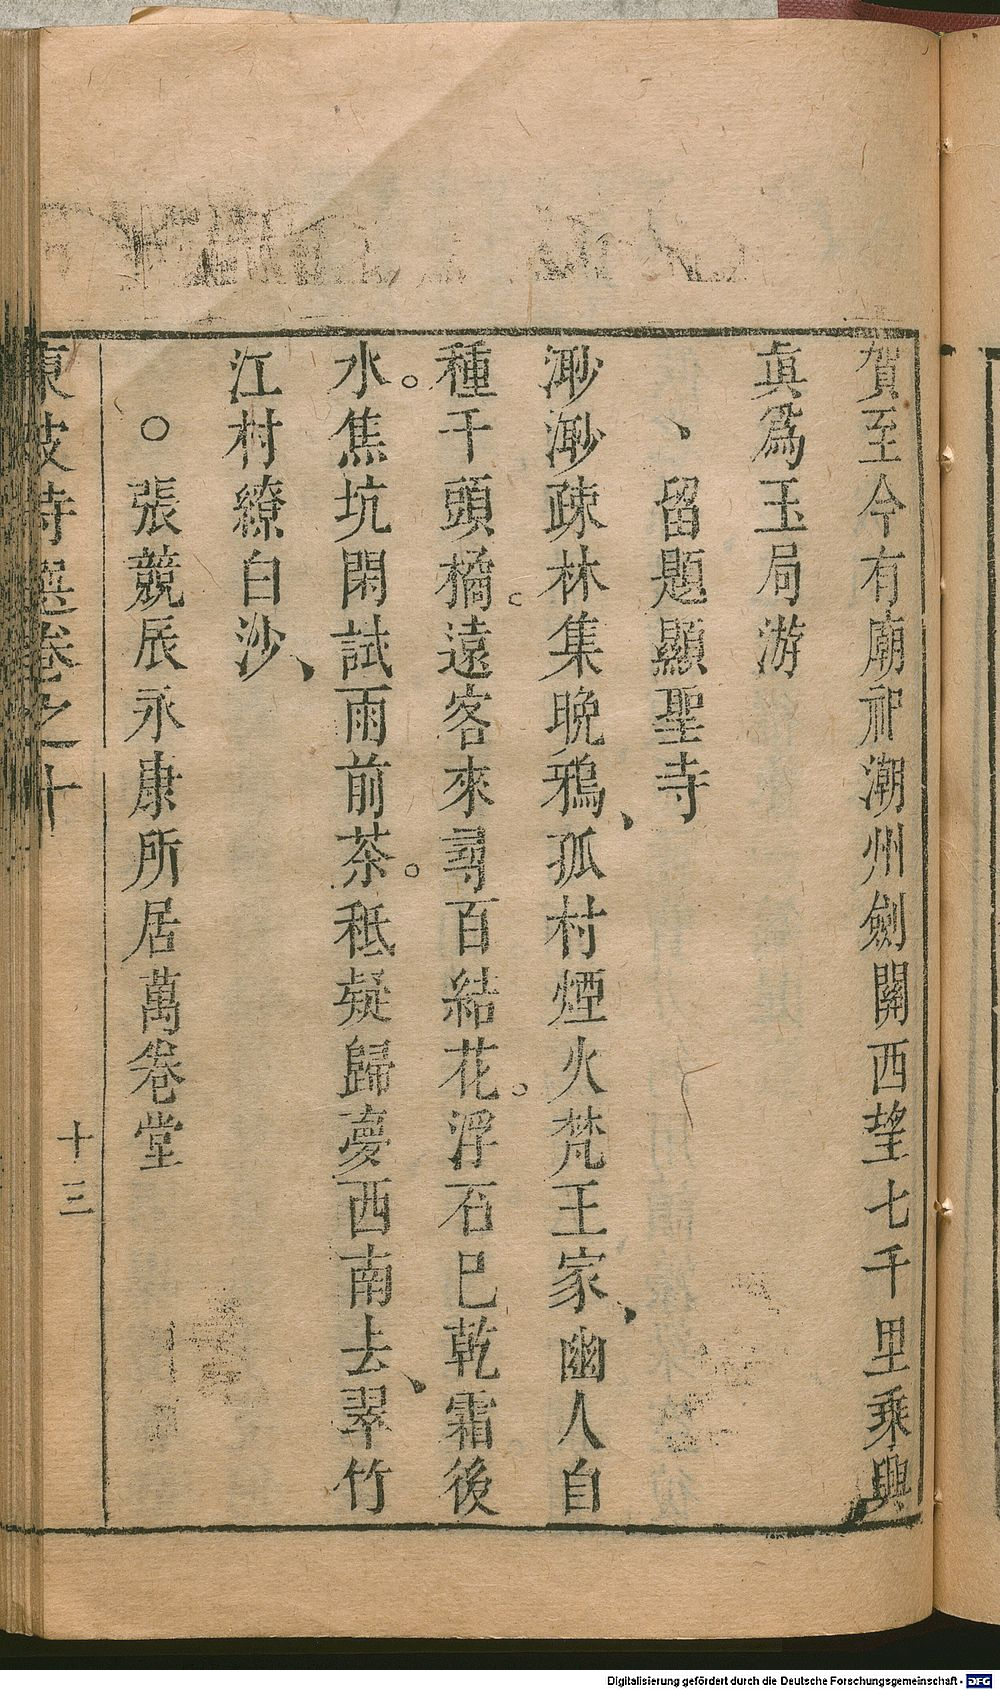 賀至今有廟祀潮州劍關西望七千里乘興
眞爲玉局游
、留題顯聖寺
渺渺疎林集晚鴉、孤村煙火梵王家、幽人自
種千頭橘。遠客來尋百結花。浮石已乾霜後
水。焦坑閑試雨前茶。秪疑歸夢西南去、翠竹
江村繚白沙、
○張競辰永康所居萬卷堂
東坡詩選卷之十
十三
Digitalisierung gefördert durch die Deutsche Forschungsgemeinschaft - DFG